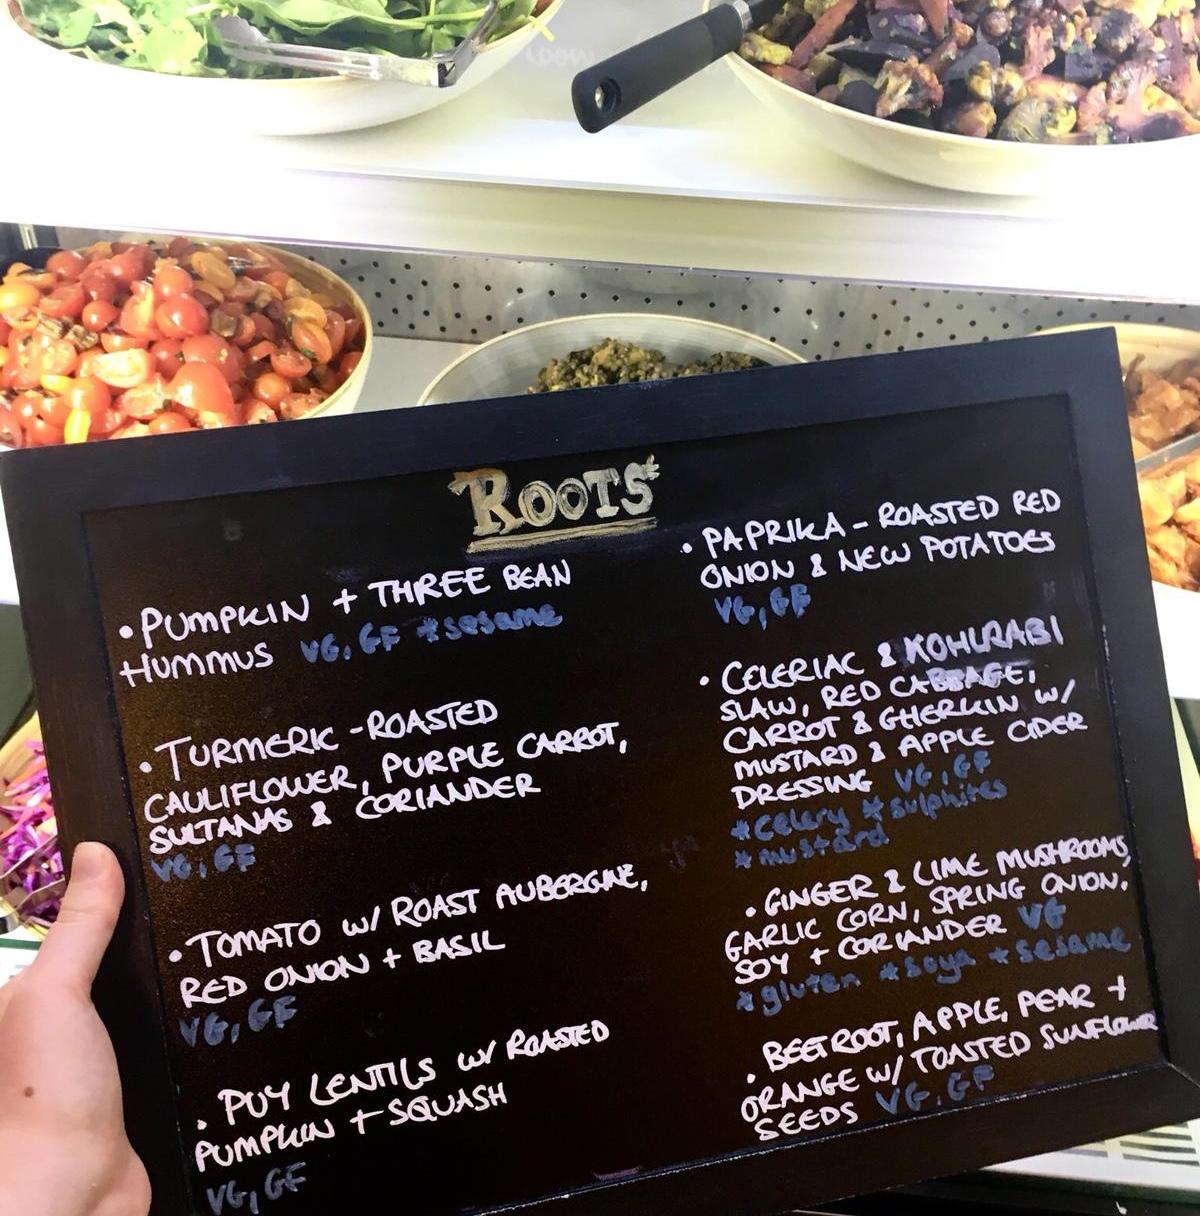 ROOTS
• PUMPKIN + THREE BEAN
HUMMUS VG, GF *sesame
• TURMERIC - ROASTED
CAULIFLOWER, PURPLE CARROT,
SULTANAS & CORIANDER
VG, GF
• TOMATO W/ ROAST AUBERGINE,
RED ONION + BASIL
VG, GF
• PUY LENTILS W/ ROASTED
PUMPKIN + SQUASH
VG, GF
• PAPRIKA - ROASTED RED
ONION & NEW POTATOES
VG, GF
• CELERIAC & KOHLRABI
SLAW, RED CABBAGE,
CARROT & GHERKIN W/
MUSTARD & APPLE CIDER
DRESSING VG, GF
*celery *sulphites
*mustard
• GINGER & LIME MUSHROOMS,
GARLIC CORN, SPRING ONION,
SOY + CORIANDER VG
*gluten *soya *sesame
• BEETROOT, APPLE, PEAR +
ORANGE W/ TOASTED SUNFLOWER
SEEDS VG, GF